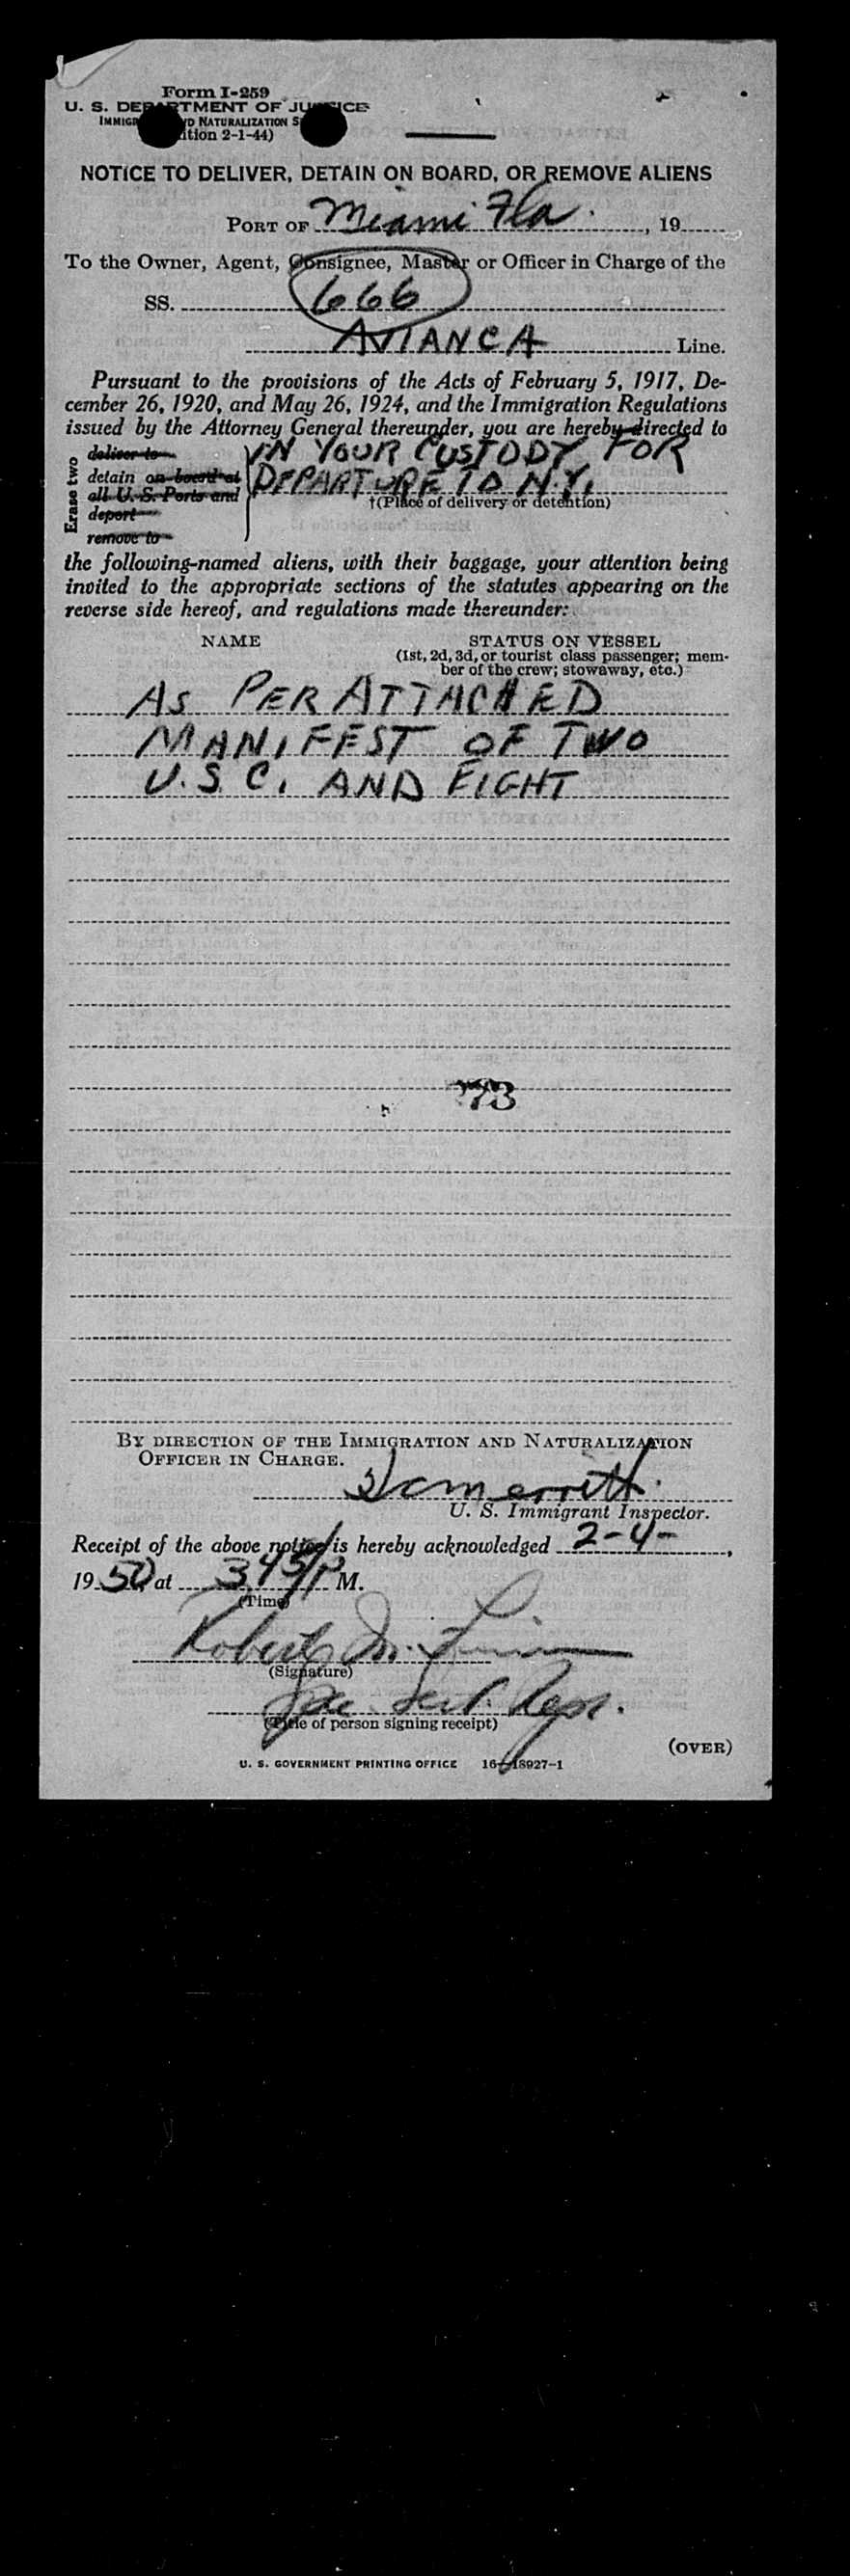 Form I-259
U. S. DEPARTMENT OF JUSTICE
IMMIGR ND NATURALIZATION S
ition 2-1-44)
NOTICE TO DELIVER, DETAIN ON BOARD, OR REMOVE ALIENS
PORT OF Miami Fla. , 19
To the Owner, Agent, Consignee, Master or Officer in Charge of the
SS. 666
AVIANCA Line.
Pursuant to the provisions of the Acts of February 5, 1917, De-
cember 26, 1920, and May 26, 1924, and the Immigration Regulations
issued by the Attorney General thereunder, you are hereby directed to
Erase two
deliver to
detain on board at
all U. S. Ports and
deport
remove to
IN YOUR CUSTODY FOR
DEPARTURE TO N.Y.
†(Place of delivery or detention)
the following-named aliens, with their baggage, your attention being
invited to the appropriate sections of the statutes appearing on the
reverse side hereof, and regulations made thereunder:
NAME STATUS ON VESSEL
(1st, 2d, 3d, or tourist class passenger; mem-
ber of the crew; stowaway, etc.)
AS PER ATTACHED
MANIFEST OF TWO
U.S.C. AND EIGHT
73
BY DIRECTION OF THE IMMIGRATION AND NATURALIZATION
OFFICER IN CHARGE.
U. S. Immigrant Inspector.
Receipt of the above notice is hereby acknowledged 2-4- ,
19 50 at 3 45/P M.
(Time)
Robert M.
(Signature)
(Title of person signing receipt)
(OVER)
U. S. GOVERNMENT PRINTING OFFICE 16-18927-1